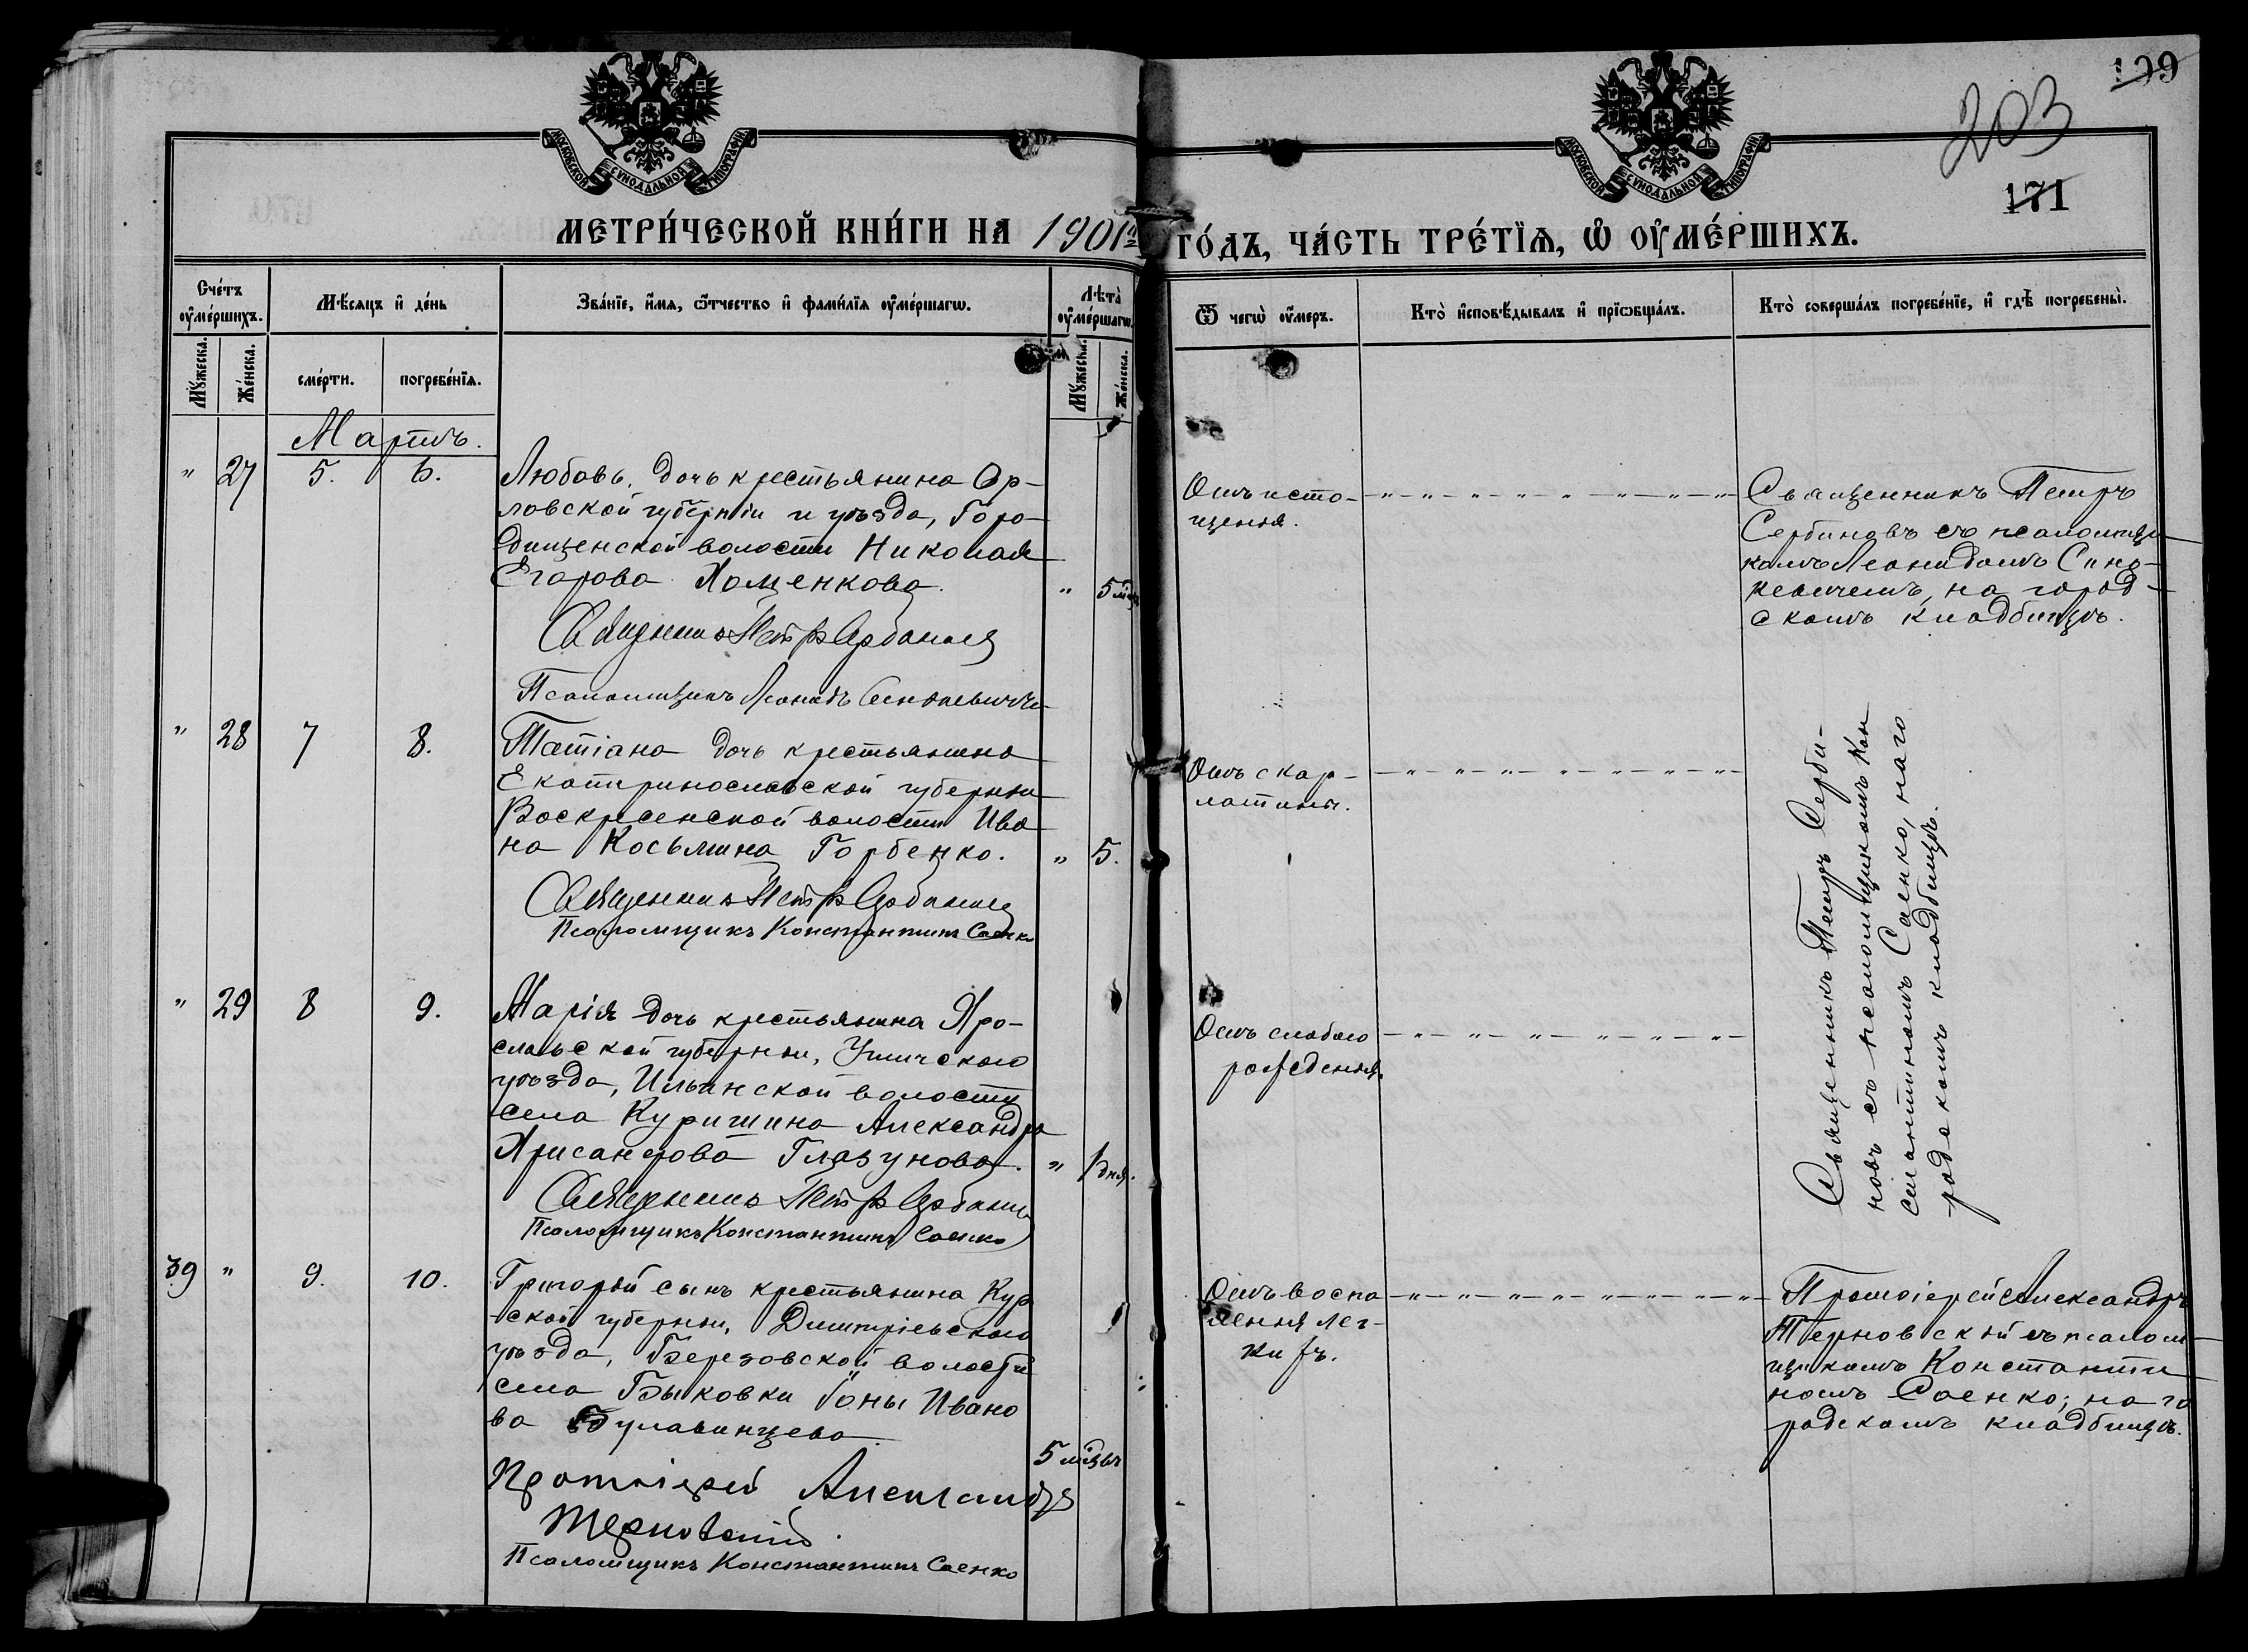 199
203
171
МОСКОВСКОЙ СУНОДАЛЬНОЙ ТИПОГРАФІИ
МОСКОВСКОЙ СУНОДАЛЬНОЙ ТИПОГРАФІИ
МЕТРИ́ЧЕСКОЙ КНИ́ГИ НА 1901й ГО́ДЪ, ЧА́СТЬ ТРЕ́ТІѦ, Ѡ҆ ОУ҆МЕ́РШИХЪ.
Сче́тъ оу҆ме́ршихъ.
Мѣ́сяцъ и҆ де́нь
Зва́нїе, и҆́мѧ, ѻ҆́тчество и҆ фами́лїѧ оу҆ме́ршагѡ.
Лѣта̀ оу҆ме́ршагѡ.
Ѿ чегѡ̀ оу҆́меръ.
Кто̀ и҆сповѣ́дывалъ и҆ прїѡбща́лъ.
Кто̀ соверша́лъ погребе́нїе, и҆ гдѣ̀ погребены̀.
Мꙋ́жеска.
Же́нска.
сме́рти.
погребе́нїѧ.
Мꙋ́жеска.
Же́нска.
Мартъ.
" 27 5. 6.
Любовь, дочь крестьянина Ор-
ловской губерніи и уѣзда, Горо-
дищенской волости Николая
Егорова Хоменкова. " 5 мѣс
Священникъ Петръ Сербиновъ
Псаломщикъ Леонидъ Синкевичъ
Отъ исто-
щенія.
Священникъ Петръ
Сербиновъ съ псаломщи-
комъ Леонидомъ Синь-
кевичемъ, на город-
скомъ кладбищѣ.
" 28 7 8.
Татіана дочь крестьянина
Екатеринославской губерніи
Воскресенской волости Ива
на Косьмина Горбенко. " 5.
Священникъ Петръ Сербиновъ
Псаломщикъ Константинъ Саенко
Отъ скар-
латины.
Священникъ Петръ Серби-
новъ съ псаломщикомъ Кон
стантиномъ Саенко, на го
родскомъ кладбищѣ.
" 29 8 9.
Марія дочь крестьянина Яро-
славской губерніи, Угличскаго
уѣзда, Ильинской волости
села Куришина Александра
Хрисанфова Глазунова. " 1 дня.
Священникъ Петръ Сербиновъ
Псаломщикъ Константинъ Саенко
Отъ слабаго
рожденія.
39 " 9. 10.
Григорій сынъ крестьянина Кур
ской губерніи, Димитріевскаго
уѣзда, Березовской волости
села Быковки Іоны Ивано
ва Булавинцева.
5 мѣсцвъ
Протоіерей Александръ
Терновскій
Псаломщикъ Константинъ Саенко
Отъ воспа
ленія лег-
кихъ.
Протоіерей Александръ
Терновскій съ псалом-
щикомъ Константи
номъ Саенко, на го
родскомъ кладбищѣ.